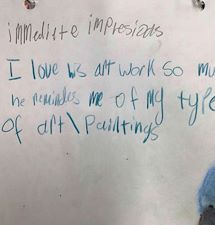 immeditte impresions
I love his art work so mu
he remindes me of my type
of art\paintings